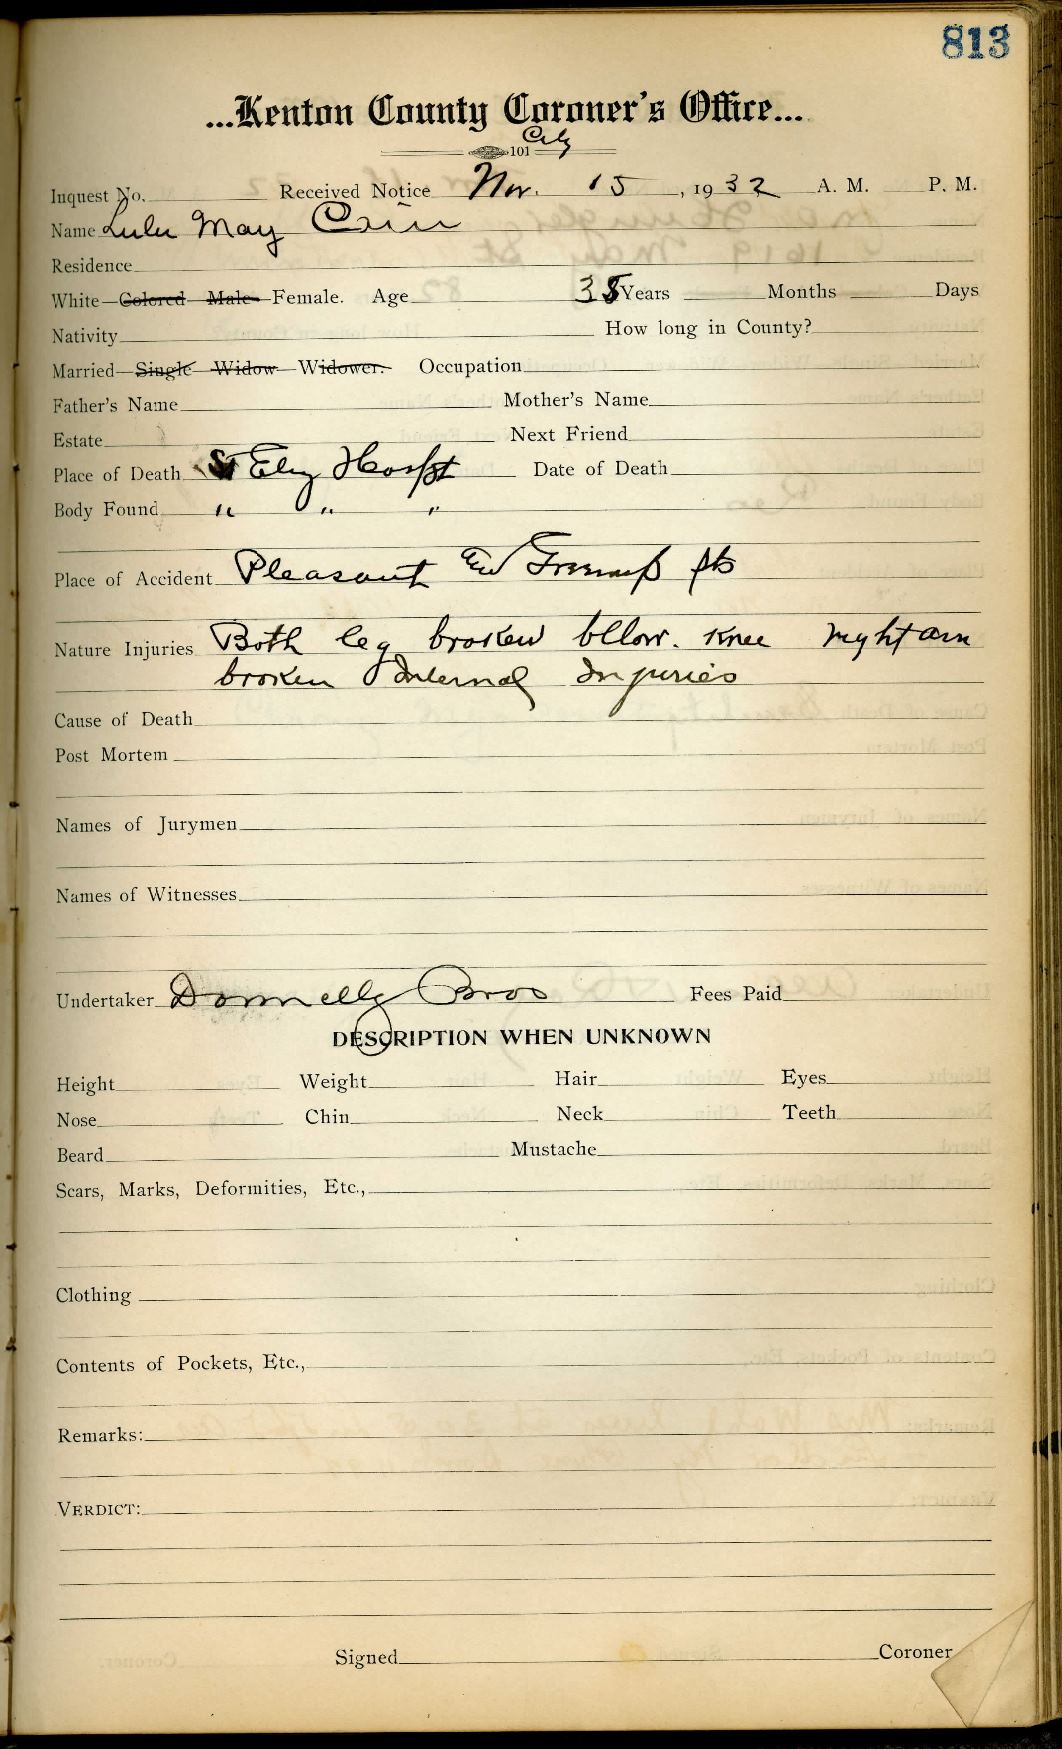 813
...Kenton County Coroner's Office...
101 City
Inquest No. Received Notice Nov. 15, 1932 A. M. P. M.
Name Lulu May
Residence
White—Colored Male Female. Age Years Months Days
Nativity How long in County?
Married—Single Widow Widower. Occupation
Father's Name Mother's Name
Estate Next Friend
Place of Death St Eliz Hospt Date of Death
Body Found " " "
Place of Accident Pleasant
Nature Injuries Both leg broken bllow. Knee right arm
broken Internal Injuries
Cause of Death
Post Mortem
Names of Jurymen
Names of Witnesses
Undertaker Donnelly Bros Fees Paid
DESCRIPTION WHEN UNKNOWN
Height Weight Hair Eyes
Nose Chin Neck Teeth
Beard Mustache
Scars, Marks, Deformities, Etc.,
Clothing
Contents of Pockets, Etc.,
Remarks:
VERDICT:
Signed Coroner